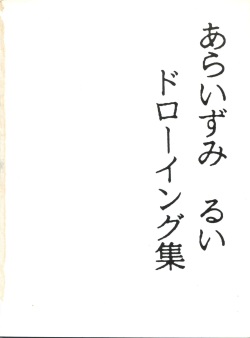 あらいずみ　るい
ドローイング集